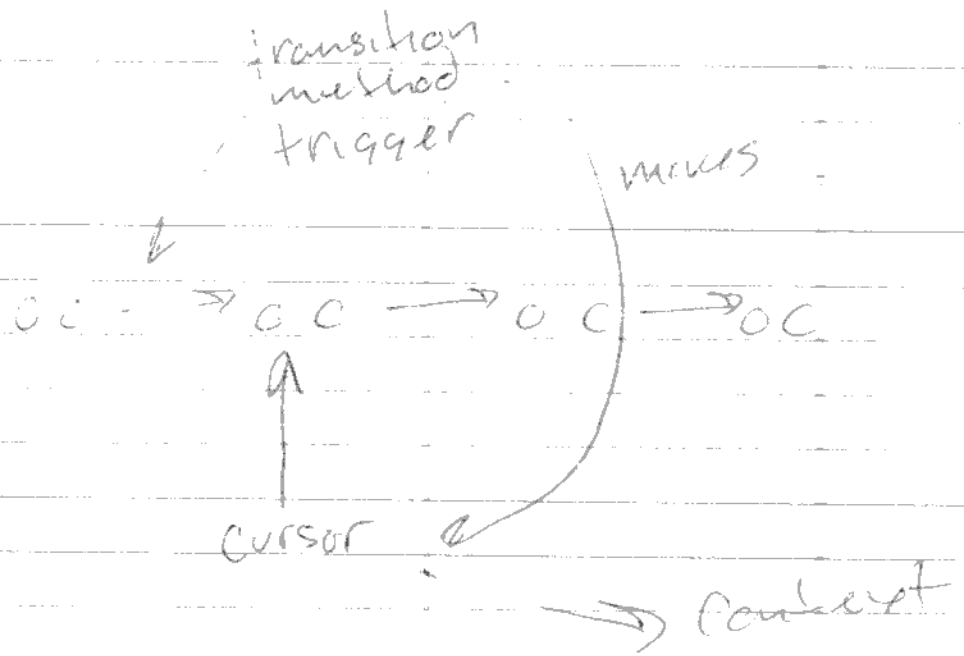 transition
method
trigger
moves
O C O C O C
cursor